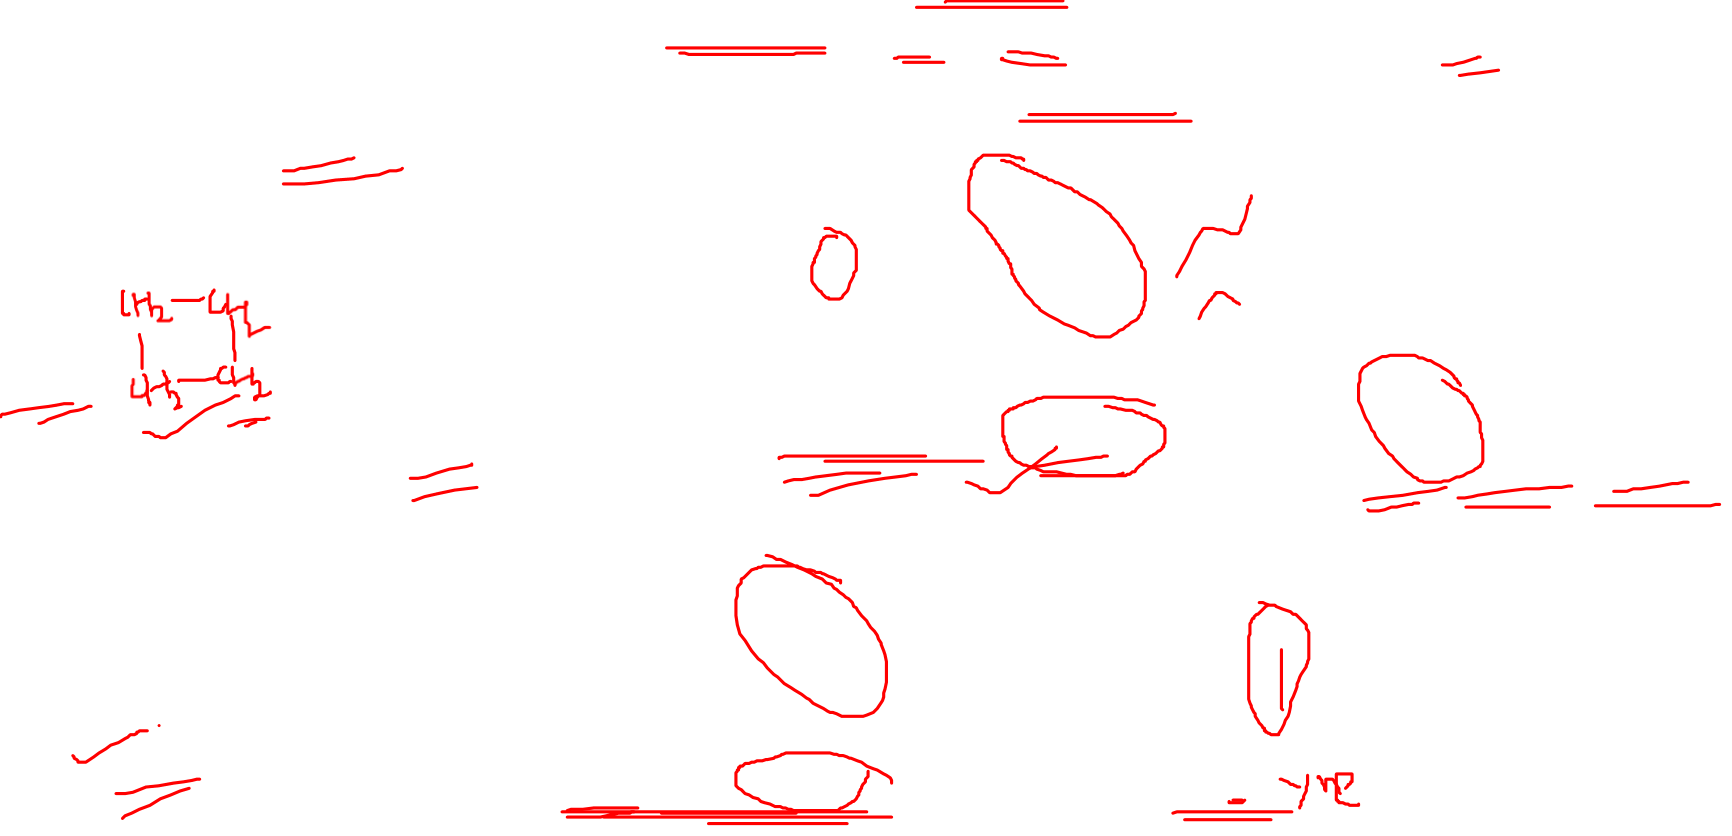 CH2-CH2
CH2-CH2